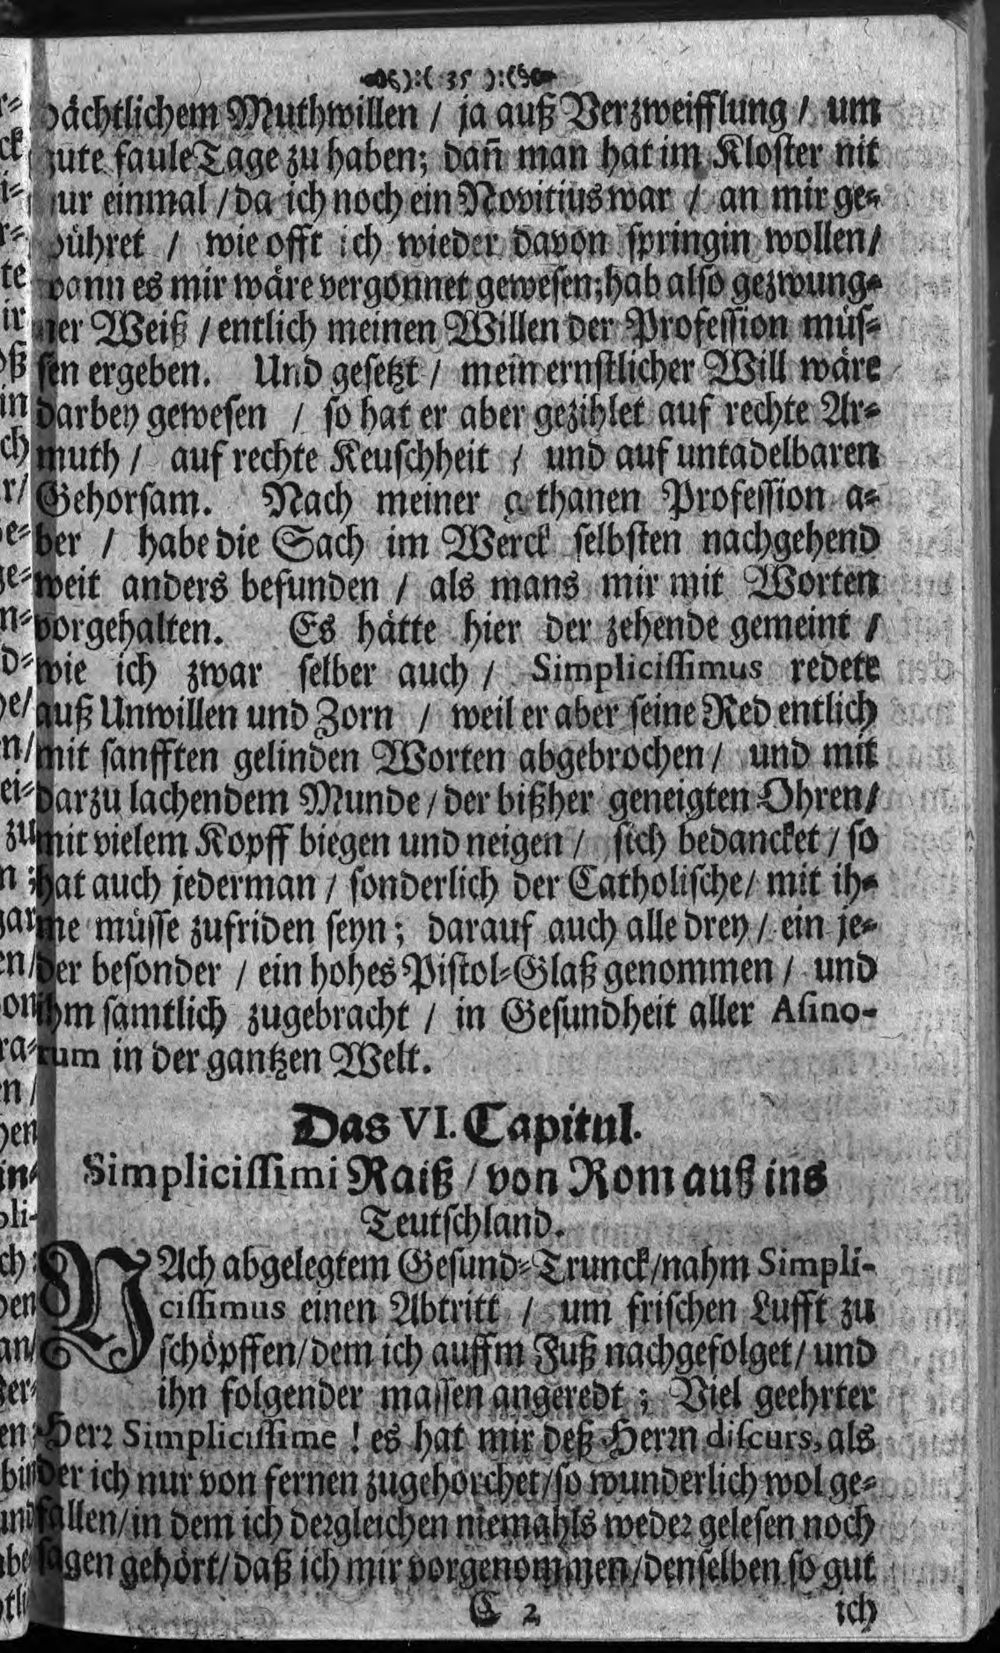 ):( 35 ):(
ächtlichem Muthwillen / ja auß Verzweifflung / um
gute faule Tage zu haben; dañ man hat im Kloster nit
nur einmal / da ich noch ein Novitius war / an mir ge-
spühret / wie offt ich wieder davon springin wollen/
wann es mir wäre vergönnet gewesen; hab also gezwung-
ner Weiß / entlich meinen Willen der Profession müs-
sen ergeben. Und gesetzt / mein ernstlicher Will wäre
darbey gewesen / so hat er aber gezihlet auf rechte Ar-
muth / auf rechte Keuschheit / und auf untadelbaren
Gehorsam. Nach meiner g thanen Profession a-
ber / habe die Sach im Werck selbsten nachgehend
weit anders befunden / als mans mir mit Worten
vorgehalten. Es hätte hier der zehende gemeint /
wie ich zwar selber auch / Simplicissimus redete
auß Unwillen und Zorn / weil er aber seine Red entlich
mit sanfften gelinden Worten abgebrochen / und mit
darzu lachendem Munde / der bißher geneigten Ohren/
mit vielem Kopff biegen und neigen / sich bedancket / so
hat auch jederman / sonderlich der Catholische / mit ih-
me müsse zufriden seyn; darauf auch alle drey / ein je-
der besonder / ein hohes Pistol-Glaß genommen / und
ihm sämtlich zugebracht / in Gesundheit aller Asino-
rum in der gantzen Welt.
Das VI. Capitul.
Simplicissimi Raiß / von Rom auß ins
Teutschland.
NAch abgelegtem Gesund-Trunck/nahm Simpli-
cissimus einen Abtritt / um frischen Lufft zu
schöpffen/dem ich auffm Fuß nachgefolget/ und
ihn folgender massen angeredt ; Viel geehrter
Herr Simplicissime ! es hat mir deß Herrn discurs, als
der ich nur von fernen zugehorchet/so wunderlich wol ge-
fallen/in dem ich dergleichen niemahls weder gelesen noch
sagen gehört/daß ich mir vorgenommen/denselben so gut
C 2 ich